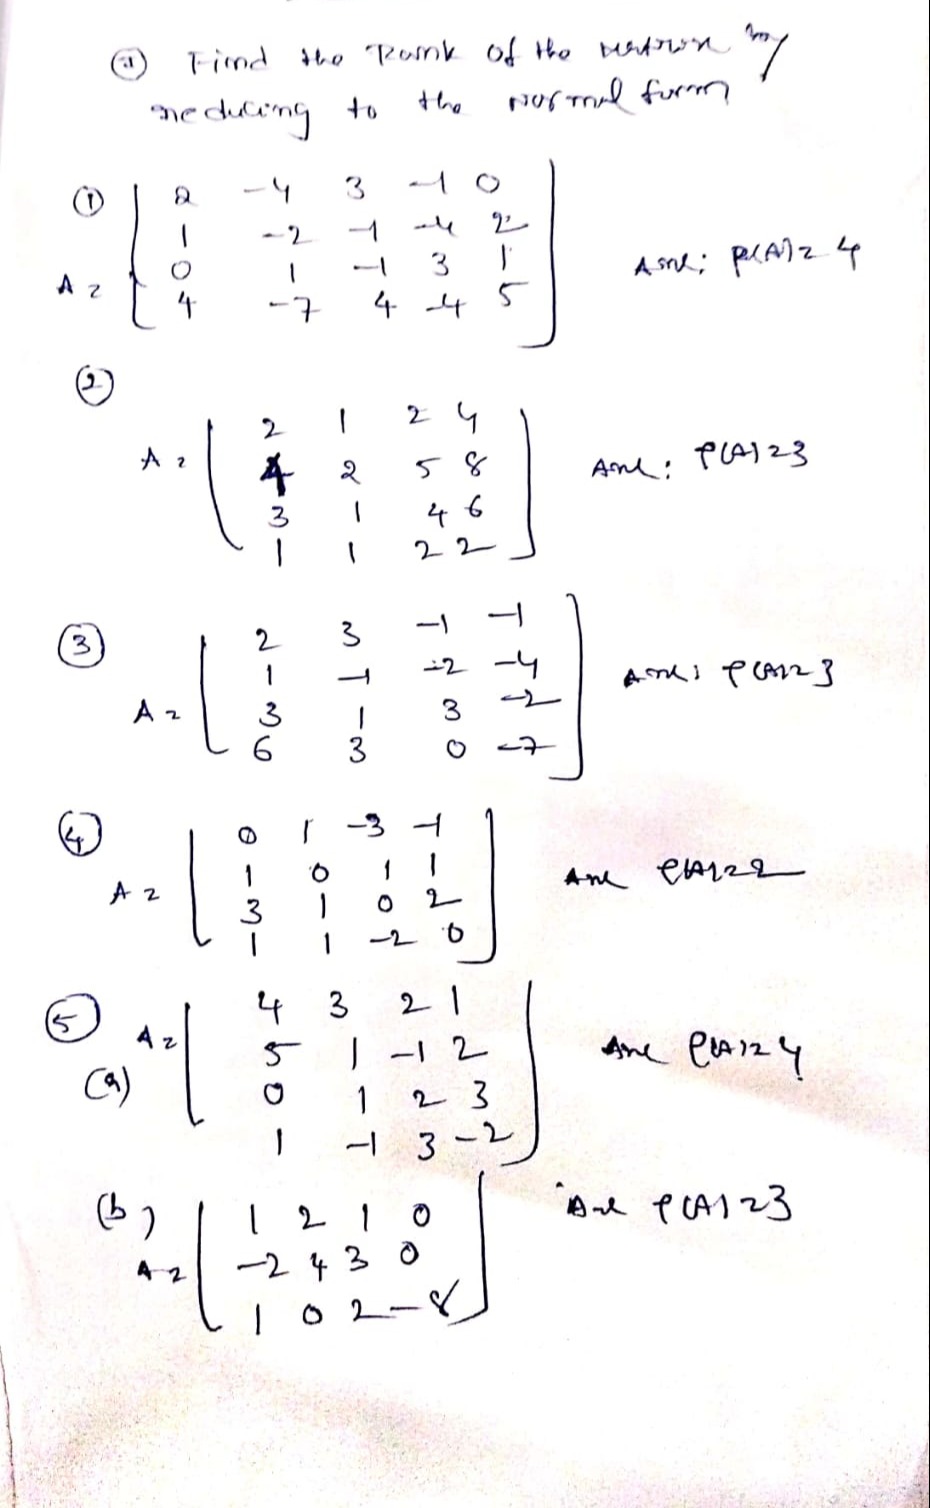 (a) Find the Rank of the matrix by
reducing to the Normal form
① A = [ 2 -4 3 -1 0
1 -2 -1 -4 2
0 1 -1 3 1
4 -7 4 -4 5 ] Ans: ρ(A) = 4
②
A = [ 2 1 2 4
4 2 5 8
3 1 4 6
1 1 2 2 ] Ans: ρ(A) = 3
③ A = [ 2 3 -1 -1
1 -1 -2 -4
3 1 3 -2
6 3 0 -7 ] Ans: ρ(A) = 3
④ A = [ 0 1 -3 -1
1 0 1 1
3 1 0 2
1 1 -2 0 ] Ans ρ(A) = 2
⑤ (a) A = [ 4 3 2 1
5 1 -1 2
0 1 2 3
1 -1 3 -2 ] Ans ρ(A) = 4
(b) A = [ 1 2 1 0
-2 4 3 0
1 0 2 -8 ] Ans ρ(A) = 3